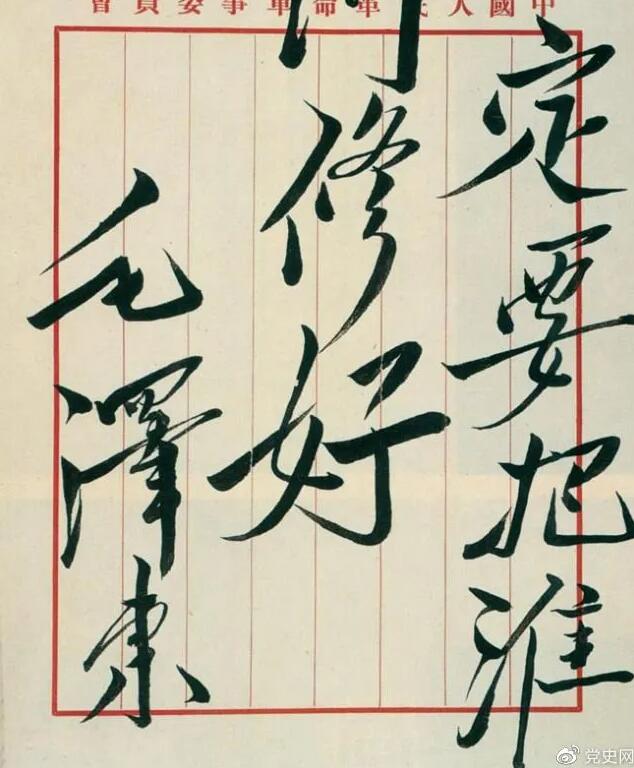 中國人民革命軍事委員會
定要把淮
修好
毛澤東
党史网